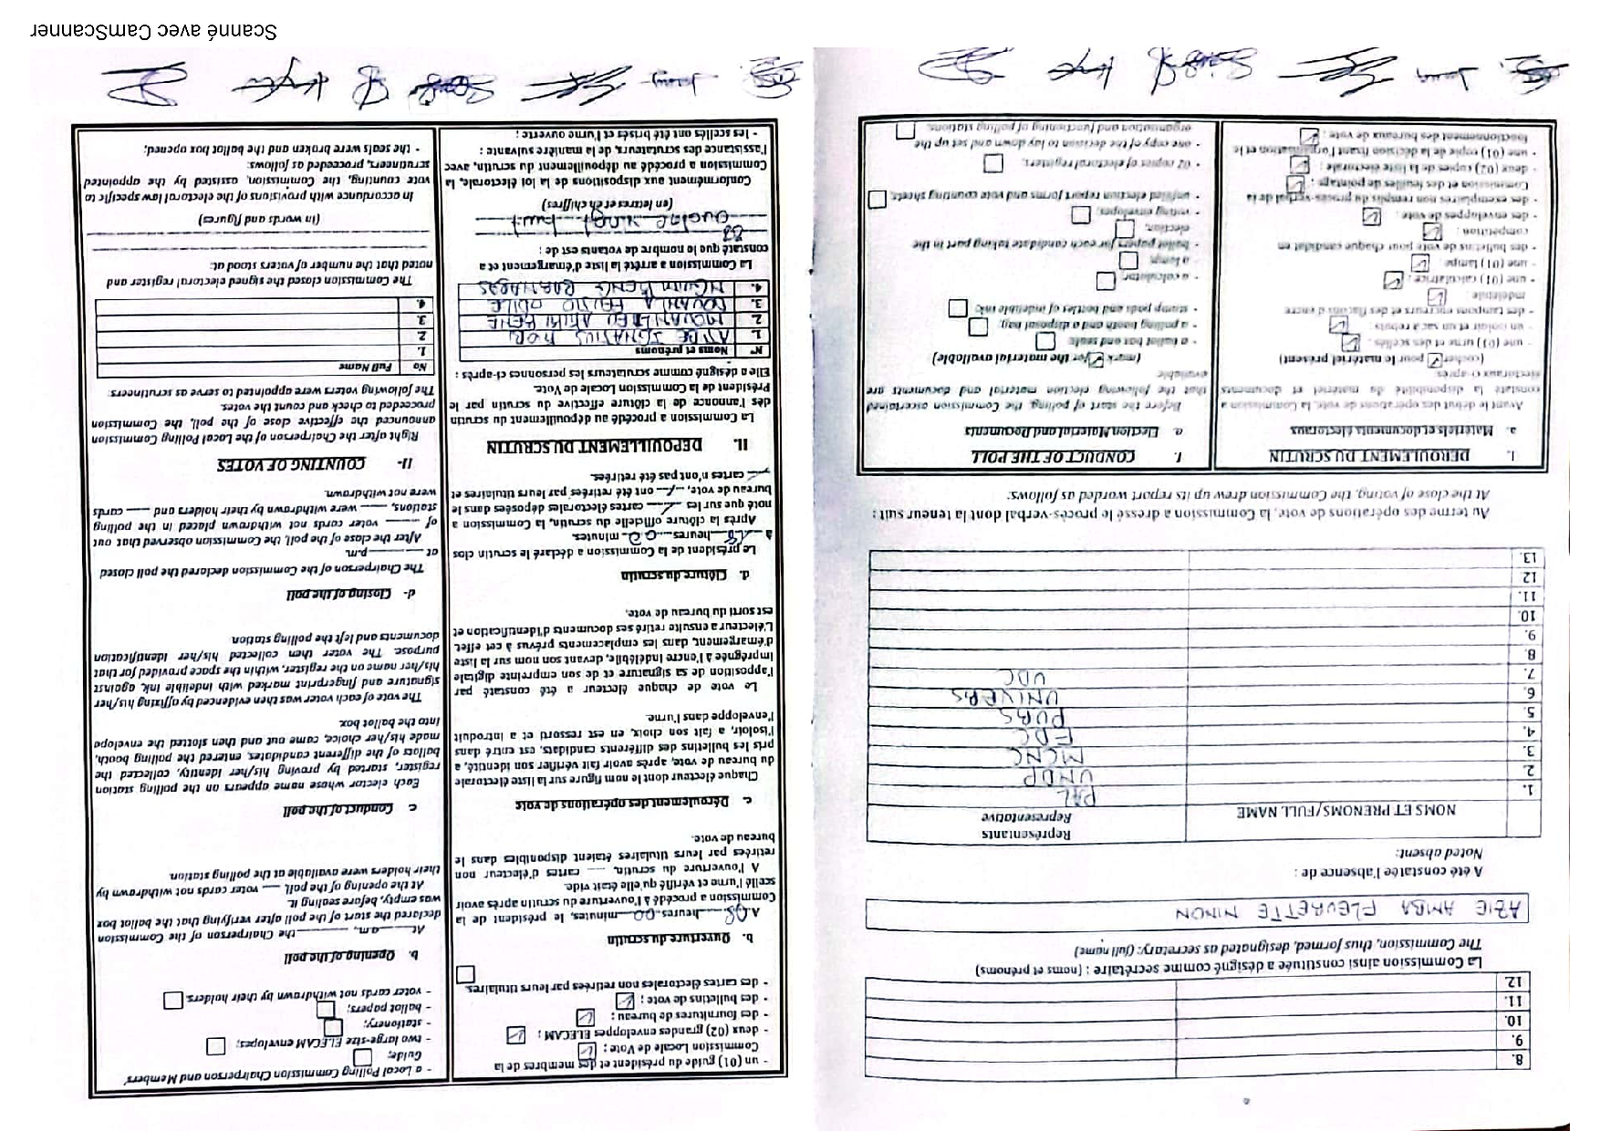 8.
9.
10.
11.
12.
La Commission ainsi constituée a désigné comme secrétaire : (noms et prénoms)
The Commission, thus formed, designated as secretary: (full name)
AZIE AMBA FLEURETTE NINON
A été constatée l'absence de :
Noted absent:
NOMS ET PRENOMS/FULL NAME
Représentants
Representative
1. PAL
2. UNDP
3. MCNC
4. FDC
5. PURS
6. UNIVERS
7. UDC
8
9.
10.
11.
12
13.
Au terme des opérations de vote, la Commission a dressé le procès-verbal dont la teneur suit :
At the close of voting, the Commission drew up its report worded as follows:
I. DEROULEMENT DU SCRUTIN
a. Matériels et documents électoraux
Avant le début des opérations de vote, la Commission a
constaté la disponibilité du matériel et documents
électoraux ci-après
(cocher pour le matériel présent)
- une (01) urne et des scellés :
- un isoloir et un sac à rebuts
- des tampons encreurs et des flacons d'encre
indélébile :
- une (01) calculatrice :
- une (01) lampe
- des bulletins de vote pour chaque candidat en
compétition :
- des enveloppes de vote :
- des exemplaires non remplis du procès-verbal de la
Commission et des feuilles de pointage :
- deux (02) copies de la liste électorale :
- une (01) copie de la décision fixant l'organisation et le
fonctionnement des bureaux de vote :
f. CONDUCT OF THE POLL
a. Election Material and Documents
Before the start of polling, the Commission ascertained
that the following election material and documents are
available
(mark for the material available)
- a ballot box and seals:
- a polling booth and a disposal bag:
- stamp pads and bottles of indelible ink:
- a calculator:
- a lamp:
- ballot papers for each candidate taking part in the
election:
- voting envelopes:
- unfilled election report forms and vote counting sheets:
- 02 copies of electoral registers:
- one copy of the decision to lay down and set up the
organisation and functioning of polling stations:
- un (01) guide du président et des membres de la
Commission Locale de Vote :
- deux (02) grandes enveloppes ELECAM :
- des fournitures de bureau :
- des bulletins de vote :
- des cartes électorales non retirées par leurs titulaires.
b. Ouverture du scrutin
A 08 heures 00 minutes, le président de la
Commission a procédé à l'ouverture du scrutin après avoir
scellé l'urne et vérifié qu'elle était vide.
A l'ouverture du scrutin, — cartes d'électeur non
retirées par leurs titulaires étaient disponibles dans le
bureau de vote.
c. Déroulement des opérations de vote
Chaque électeur dont le nom figure sur la liste électorale
du bureau de vote, après avoir fait vérifier son identité, a
pris les bulletins des différents candidats, est entré dans
l'isoloir, a fait son choix, en est ressorti et a introduit
l'enveloppe dans l'urne.
Le vote de chaque électeur a été constaté par
l'apposition de sa signature et de son empreinte digitale
imprégnée à l'encre indélébile, devant son nom sur la liste
d'émargement, dans les emplacements prévus à cet effet.
L'électeur a ensuite retiré ses documents d'identification et
est sorti du bureau de vote.
d. Clôture du scrutin
Le président de la Commission a déclaré le scrutin clos
à 18 heures 00 minutes.
Après la clôture officielle du scrutin, la Commission a
noté que sur les / cartes électorales déposées dans le
bureau de vote, / ont été retirées par leurs titulaires et
/ cartes n'ont pas été retirées.
II. DEPOUILLEMENT DU SCRUTIN
La Commission a procédé au dépouillement du scrutin
dès l'annonce de la clôture effective du scrutin par le
Président de la Commission Locale de Vote.
Elle a désigné comme scrutateurs les personnes ci-après :
N° Noms et prénoms
1. IGNATIUS
2.
3. ODILE
4. BARNABAS
La Commission a arrêté la liste d'émargement et a
constaté que le nombre de votants est de :
88
(en lettres et en chiffres)
Conformément aux dispositions de la loi électorale, la
Commission a procédé au dépouillement du scrutin, avec
l'assistance des scrutateurs, de la manière suivante :
- les scellés ont été brisés et l'urne ouverte ;
- a Local Polling Commission Chairperson and Members'
Guide;
- two large-size ELECAM envelopes;
- stationery;
- ballot papers;
- voter cards not withdrawn by their holders.
b. Opening of the poll
At a.m., the Chairperson of the Commission
declared the start of the poll after verifying that the ballot box
was empty, before sealing it.
At the opening of the poll, — voter cards not withdrawn by
their holders were available at the polling station.
c. Conduct of the poll
Each elector whose name appears on the polling station
register, started by proving his/her identity, collected the
ballots of the different candidates, entered the polling booth,
made his/her choice, came out and then slotted the envelope
into the ballot box.
The vote of each voter was then evidenced by affixing his/her
signature and fingerprint marked with indelible ink, against
his/her name on the register, within the space provided for that
purpose. The voter then collected his/her identification
documents and left the polling station.
d- Closing of the poll
The Chairperson of the Commission declared the poll closed
at p.m.
After the close of the poll, the Commission observed that out
of — voter cards not withdrawn placed in the polling
stations, — were withdrawn by their holders and — cards
were not withdrawn.
II- COUNTING OF VOTES
Right after the Chairperson of the Local Polling Commission
announced the effective close of the poll, the Commission
proceeded to check and count the votes.
The following voters were appointed to serve as scrutineers:
No Full Name
1.
2.
3.
4.
The Commission closed the signed electoral register and
noted that the number of voters stood at:
(in words and figures)
In accordance with provisions of the electoral law specific to
vote counting, the Commission, assisted by the appointed
scrutineers, proceeded as follows:
- the seals were broken and the ballot box opened;
Scanné avec CamScanner